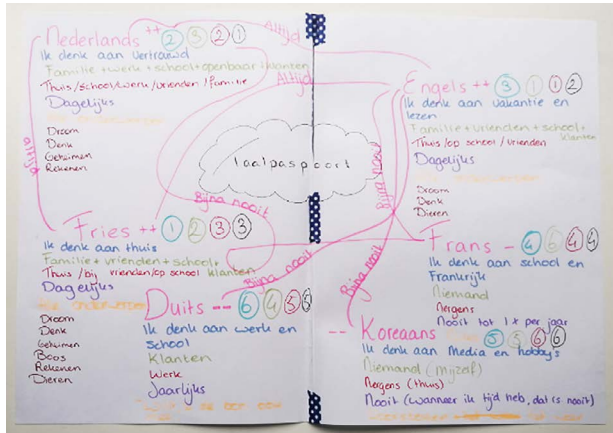 Nederlands ++ 2 3 2 1
Ik denk aan vertrouwd
Familie + werk + school + openbaar / klanten
Thuis / school / werk / vrienden / familie
Dagelijks
Droom
Denk
Geheimen
Rekenen
Altijd
Altijd
altijd
Engels ++ 3 1 1 2
Ik denk aan vakantie en
lezen
Familie + vrienden + school +
klanten
Thuis / op school / vrienden
Dagelijks
Droom
Denk
Dieren
Taalpaspoort
Bijna nooit
Bijna nooit
Bijna nooit
Bijna nooit
Fries ++ 1 2 3 3
Ik denk aan thuis
Familie + vrienden + school +
klanten
Thuis / bij vrienden / op school
Dagelijks
Droom
Denk
Geheimen
Boos
Rekenen
Dieren
Frans - 4 6 4 4
Ik denk aan school en
Frankrijk
Niemand
Nergens
Nooit tot 1 x per jaar
Duits -- 6 4 5 5
Ik denk aan werk en
school
Klanten
Werk
Jaarlijks
-- Koreaans 5 5 6 6
Ik denk aan Media en hobby's
Niemand (mijzelf)
Nergens (thuis)
Nooit (wanneer ik tijd heb, dat is nooit)